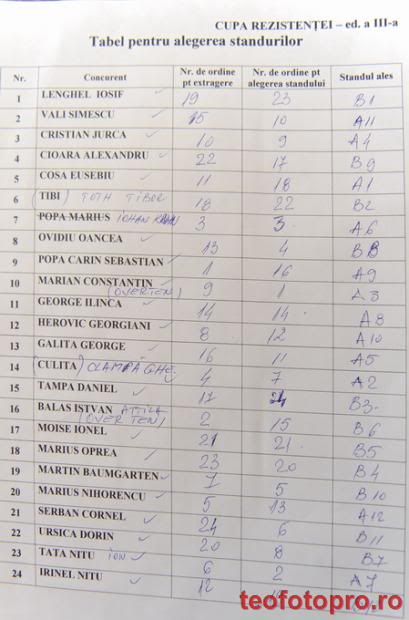 CUPA REZISTENȚEI – ed. a III-a
Tabel pentru alegerea standurilor
Nr. Concurent Nr. de ordine pt extragere Nr. de ordine pt alegerea standului Standul ales
1 LENGHEL IOSIF 19 23 B1
2 VALI SIMESCU 15 10 A11
3 CRISTIAN JURCA 10 9 A4
4 CIOARA ALEXANDRU 22 17 B9
5 COSA EUSEBIU 11 18 A1
6 (TIBI) TOTH TIBOR 18 22 B2
7 POPA MARIUS IOHAN 3 3 A6
8 OVIDIU OANCEA 13 4 B8
9 POPA CARIN SEBASTIAN 1 16 A9
10 MARIAN CONSTANTIN (OVERTEN) 9 1 A3
11 GEORGE ILINCA 14 14 A8
12 HEROVIC GEORGIANI 8 12 A10
13 GALITA GEORGE 16 11 A5
14 (CULITA) 4 7 A2
15 TAMPA DANIEL 17 24 B3
16 BALAS ISTVAN ATTILA (OVERTEN) 2 15 B6
17 MOISE IONEL 21 21 B5
18 MARIUS OPREA 23 20 B4
19 MARTIN BAUMGARTEN 7 5 B10
20 MARIUS NIHORENCU 5 13 A12
21 SERBAN CORNEL 24 6 B11
22 URSICA DORIN 20 8 B7
23 TATA NITU ION 6 2 A7
24 IRINEL NITU 12
teofotopro.ro